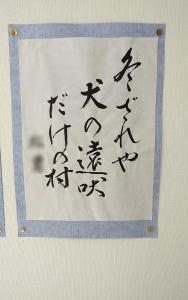 冬ざれや
犬の遠吠
だけの村